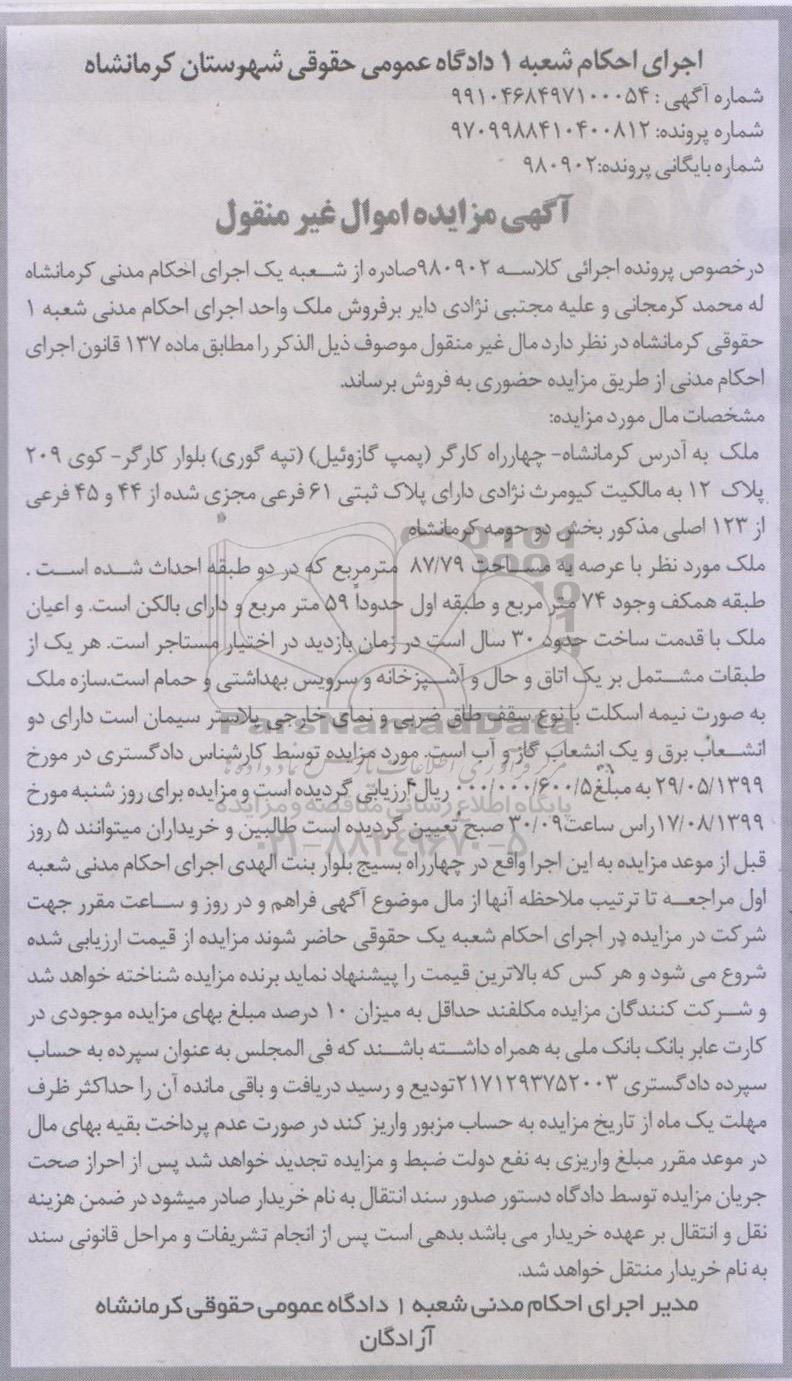 اجرای احکام شعبه ۱ دادگاه عمومی حقوقی شهرستان کرمانشاه
شماره آگهی : ۹۹۱۰۴۶۸۴۹۷۱۰۰۰۵۴
شماره پرونده: ۹۷۰۹۹۸۸۴۱۰۴۰۰۸۱۲
شماره بایگانی پرونده:۹۸۰۹۰۲
آگهی مزایده اموال غیر منقول
درخصوص پرونده اجرائی کلاسه ۹۸۰۹۰۲صادره از شعبه یک اجرای احکام مدنی کرمانشاه
له محمد کرمجانی و علیه مجتبی نژادی دایر برفروش ملک واحد اجرای احکام مدنی شعبه ۱
حقوقی کرمانشاه در نظر دارد مال غیر منقول موصوف ذیل الذکر را مطابق ماده ۱۳۷ قانون اجرای
احکام مدنی از طریق مزایده حضوری به فروش برساند.
مشخصات مال مورد مزایده:
ملک به آدرس کرمانشاه- چهارراه کارگر (پمپ گازوئیل) (تپه گوری) بلوار کارگر- کوی ۲۰۹
پلاک ۱۲ به مالکیت کیومرث نژادی دارای پلاک ثبتی ۶۱ فرعی مجزی شده از ۴۴ و ۴۵ فرعی
از ۱۲۳ اصلی مذکور بخش دو حومه کرمانشاه
ملک مورد نظر با عرصه به مساحت ۸۷/۷۹ مترمربع که در دو طبقه احداث شده است .
طبقه همکف وجود ۷۴ متر مربع و طبقه اول حدوداً ۵۹ متر مربع و دارای بالکن است. و اعیان
ملک با قدمت ساخت حدود ۳۰ سال است در زمان بازدید در اختیار مستاجر است. هر یک از
طبقات مشتمل بر یک اتاق و حال و آشپزخانه و سرویس بهداشتی و حمام است.سازه ملک
به صورت نیمه اسکلت با نوع سقف طاق ضربی و نمای خارجی پلاستر سیمان است دارای دو
انشعاب برق و یک انشعاب گاز و آب است. مورد مزایده توسط کارشناس دادگستری در مورخ
۲۹/۰۵/۱۳۹۹ به مبلغ۰۰۰/۰۰۰/۶۰۰/۵ ریال ارزیابی گردیده است و مزایده برای روز شنبه مورخ
۱۷/۰۸/۱۳۹۹راس ساعت۳۰/۰۹ صبح تعیین گردیده است طالبین و خریداران میتوانند ۵ روز
قبل از موعد مزایده به این اجرا واقع در چهارراه بسیج بلوار بنت الهدی اجرای احکام مدنی شعبه
اول مراجعه تا ترتیب ملاحظه آنها از مال موضوع آگهی فراهم و در روز و ساعت مقرر جهت
شرکت در مزایده در اجرای احکام شعبه یک حقوقی حاضر شوند مزایده از قیمت ارزیابی شده
شروع می شود و هر کس که بالاترین قیمت را پیشنهاد نماید برنده مزایده شناخته خواهد شد
و شرکت کنندگان مزایده مکلفند حداقل به میزان ۱۰ درصد مبلغ بهای مزایده موجودی در
کارت عابر بانک بانک ملی به همراه داشته باشند که فی المجلس به عنوان سپرده به حساب
سپرده دادگستری ۲۱۷۱۲۹۳۷۵۲۰۰۳تودیع و رسید دریافت و باقی مانده آن را حداکثر ظرف
مهلت یک ماه از تاریخ مزایده به حساب مزبور واریز کند در صورت عدم پرداخت بقیه بهای مال
در موعد مقرر مبلغ واریزی به نفع دولت ضبط و مزایده تجدید خواهد شد پس از احراز صحت
جریان مزایده توسط دادگاه دستور صدور سند انتقال به نام خریدار صادر میشود در ضمن هزینه
نقل و انتقال بر عهده خریدار می باشد بدهی است پس از انجام تشریفات و مراحل قانونی سند
به نام خریدار منتقل خواهد شد.
مدیر اجرای احکام مدنی شعبه ۱ دادگاه عمومی حقوقی کرمانشاه
آزادگان
ParsNamadData
پایگاه اطلاع رسانی مناقصه و مزایده
۰۲۱-۸۸۳۴۹۶۷۰-۵